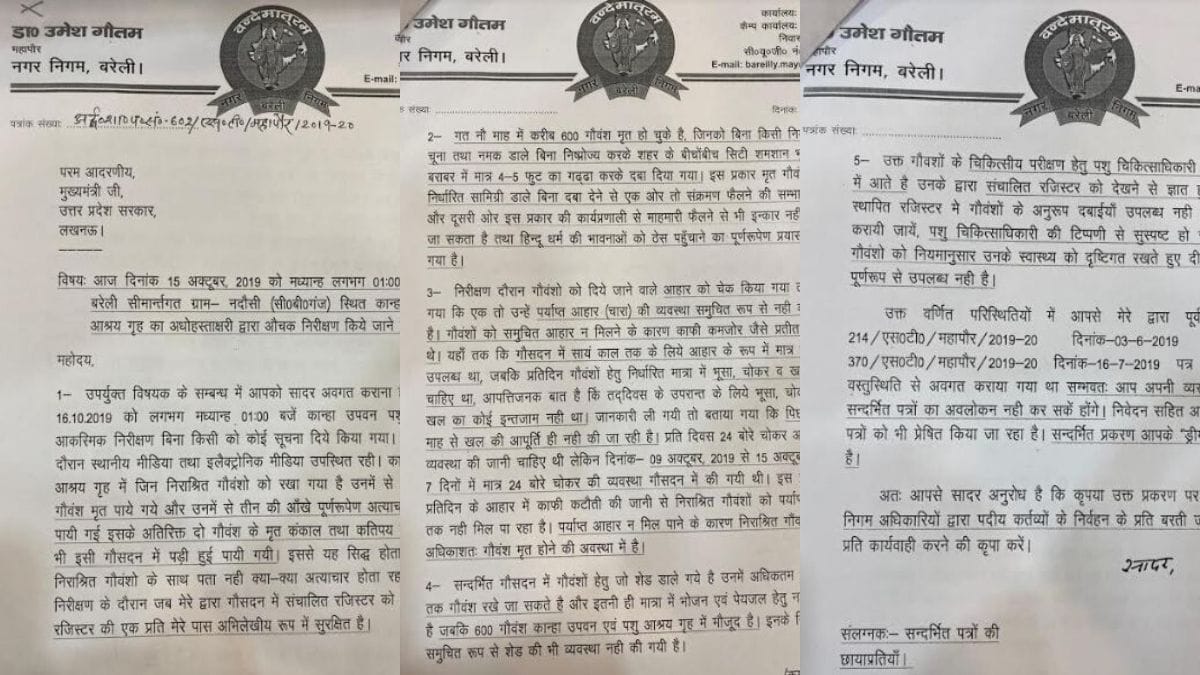 डा० उमेश गौतम
महापौर
नगर निगम, बरेली।
वन्देमातरम
नगर निगम
बरेली
E-mail:
पत्रांक संख्या:
602/एस०टी०/महापौर/2019-20
परम आदरणीय,
मुख्यमंत्री जी,
उत्तर प्रदेश सरकार,
लखनऊ।
विषयः आज दिनांक 15 अक्टूबर, 2019 को मध्यान्ह लगभग 01:00
बरेली सीमान्र्तगत ग्राम– नदौसी (सी०बी०गंज) स्थित कान्ह
आश्रय गृह का अधोहस्ताक्षरी द्वारा औचक निरीक्षण किये जाने
महोदय,
1– उपर्युक्त विषयक के सम्बन्ध में आपको सादर अवगत कराना
16.10.2019 को लगभग मध्यान्ह 01:00 बजें कान्हा उपवन पशु
आकस्मिक निरीक्षण बिना किसी को कोई सूचना दिये किया गया।
दौरान स्थानीय मीडिया तथा इलैक्ट्रोनिक मीडिया उपस्थित रही। का
आश्रय गृह में जिन निराश्रित गौवंशो को रखा गया है उनमें से
गौवंश मृत पाये गये और उनमें से तीन की आँखे पूर्णरूपेण अत्याच
पायी गई इसके अतिरिक्त दो गौवंश के मृत कंकाल तथा कतिपय
भी इसी गौसदन में पड़ी हुई पायी गयी। इससे यह सिद्ध होता
निराश्रित गौवंशो के साथ पता नही क्या–क्या अत्याचार होता रह
निरीक्षण के दौरान जब मेरे द्वारा गौसदन में संचालित रजिस्टर को
रजिस्टर की एक प्रति मेरे पास अभिलेखीय रूप में सुरक्षित है।
उमेश गौतम
नगर निगम, बरेली।
वन्देमातरम
नगर निगम
बरेली
कार्यालयः
कैम्प कार्यालयः
निवास
सी०यू०जी० नं
E-mail: bareilly.may
संख्याः
दिनांकः
2– गत नौ माह में करीब 600 गौवंश मृत हो चुके है, जिनको बिना किसी नि
चूना तथा नमक डाले बिना निष्प्रोज्य करके शहर के बीचोंबीच सिटी शमशान भ
बराबर में मात्र 4–5 फुट का गढ्ढा करके दबा दिया गया। इस प्रकार मृत गौवं
निर्धारित सामिग्री डाले बिना दबा देने से एक ओर तो संक्रमण फैलने की सम्भा
और दूसरी ओर इस प्रकार की कार्यप्रणाली से माहमारी फैलने से भी इन्कार नही
जा सकता है तथा हिन्दू धर्म की भावनाओं को ठेस पहुँचाने का पूर्णरूपेण प्रयास
गया है।
3– निरीक्षण दौरान गौवंशो को दिये जाने वाले आहार को चेक किया गया त
गया कि एक तो उन्हें पर्याप्त आहार (चारा) की व्यवस्था समुचित रूप से नही क
है। गौवंशों को समुचित आहार न मिलने के कारण काफी कमजोर जैसे प्रतीत
थे। यहॉं तक कि गौसदन में सायं काल तक के लिये आहार के रूप में मात्र
उपलब्ध था, जबकि प्रतिदिन गौवंशों हेतु निर्धारित मात्रा में भूसा, चोकर व ख
चाहिए था, आपत्तिजनक बात है कि तद्दिवस के उपरान्त के लिये भूसा, चोक
खल का कोई इन्तजाम नही था। जानकारी ली गयी तो बताया गया कि पिछ
माह से खल की आपूर्ति ही नही की जा रही है। प्रति दिवस 24 बोरे चोकर अ
व्यवस्था की जानी चाहिए थी लेकिन दिनांक– 09 अक्टूबर, 2019 से 15 अक्टूब
7 दिनों में मात्र 24 बोरे चोकर की व्यवस्था गौसदन में की गयी थी। इस
प्रतिदिन के आहार में काफी कटौती की जानी से निराश्रित गौवंशों को पर्याप
तक नही मिल पा रहा है। पर्याप्त आहार न मिल पाने के कारण निराश्रित गौवं
अधिकाशतः गौवंश मृत होने की अवस्था में है।
4– सन्दर्भित गौसदन में गौवंशों हेतु जो शेड डाले गये है उनमें अधिकतम
तक गौवंश रखे जा सकते है और इतनी ही मात्रा में भोजन एवं पेयजल हेतु न
है जबकि 600 गौवंश कान्हा उपवन एवं पशु आश्रय गृह में मौजूद है। इनके
समुचित रूप से शेड की भी व्यवस्था नही की गयी है।
उमेश गौतम
नगर निगम, बरेली।
वन्देमातरम
नगर निगम
बरेली
E-ma
पत्रांक संख्याः
5– उक्त गौवशों के चिकित्सीय परीक्षण हेतु पशु चिकित्साधिकारी
में आते है उनके द्वारा संचालित रजिस्टर को देखने से ज्ञात ह
स्थापित रजिस्टर मे गौवंशों के अनुरूप दबाईयाँ उपलब्ध नही
करायी जायें, पशु चिकित्साधिकारी की टिप्पणी से सुस्पष्ट हो
गौवंशो को नियमानुसार उनके स्वास्थ्य को दृष्टिगत रखते हुए दी
पूर्णरूप से उपलब्ध नही है।
उक्त वर्णित परिस्थितियों में आपसे मेरे द्वारा पूर्व
214/एस0टी0/महापौर/2019-20 दिनांक–03-6-2019
370/एस0टी0/महापौर/2019-20 दिनांक–16-7-2019 पत्र
वस्तुस्थिति से अवगत कराया गया था सम्भवतः आप अपनी व्य
सन्दर्भित पत्रों का अवलोकन नही कर सकें होंगे। निवेदन सहित अ
पत्रों को भी प्रेषित किया जा रहा है। सन्दर्भित प्रकरण आपके "ड्री
है।
अतः आपसे सादर अनुरोध है कि कृपया उक्त प्रकरण पर
निगम अधिकारियों द्वारा पदीय कर्तव्यों के निर्वहन के प्रति बरती
प्रति कार्यवाही करने की कृपा करें।
सादर,
संलग्नकः– सन्दर्भित पत्रों की
छायाप्रतियाँ।